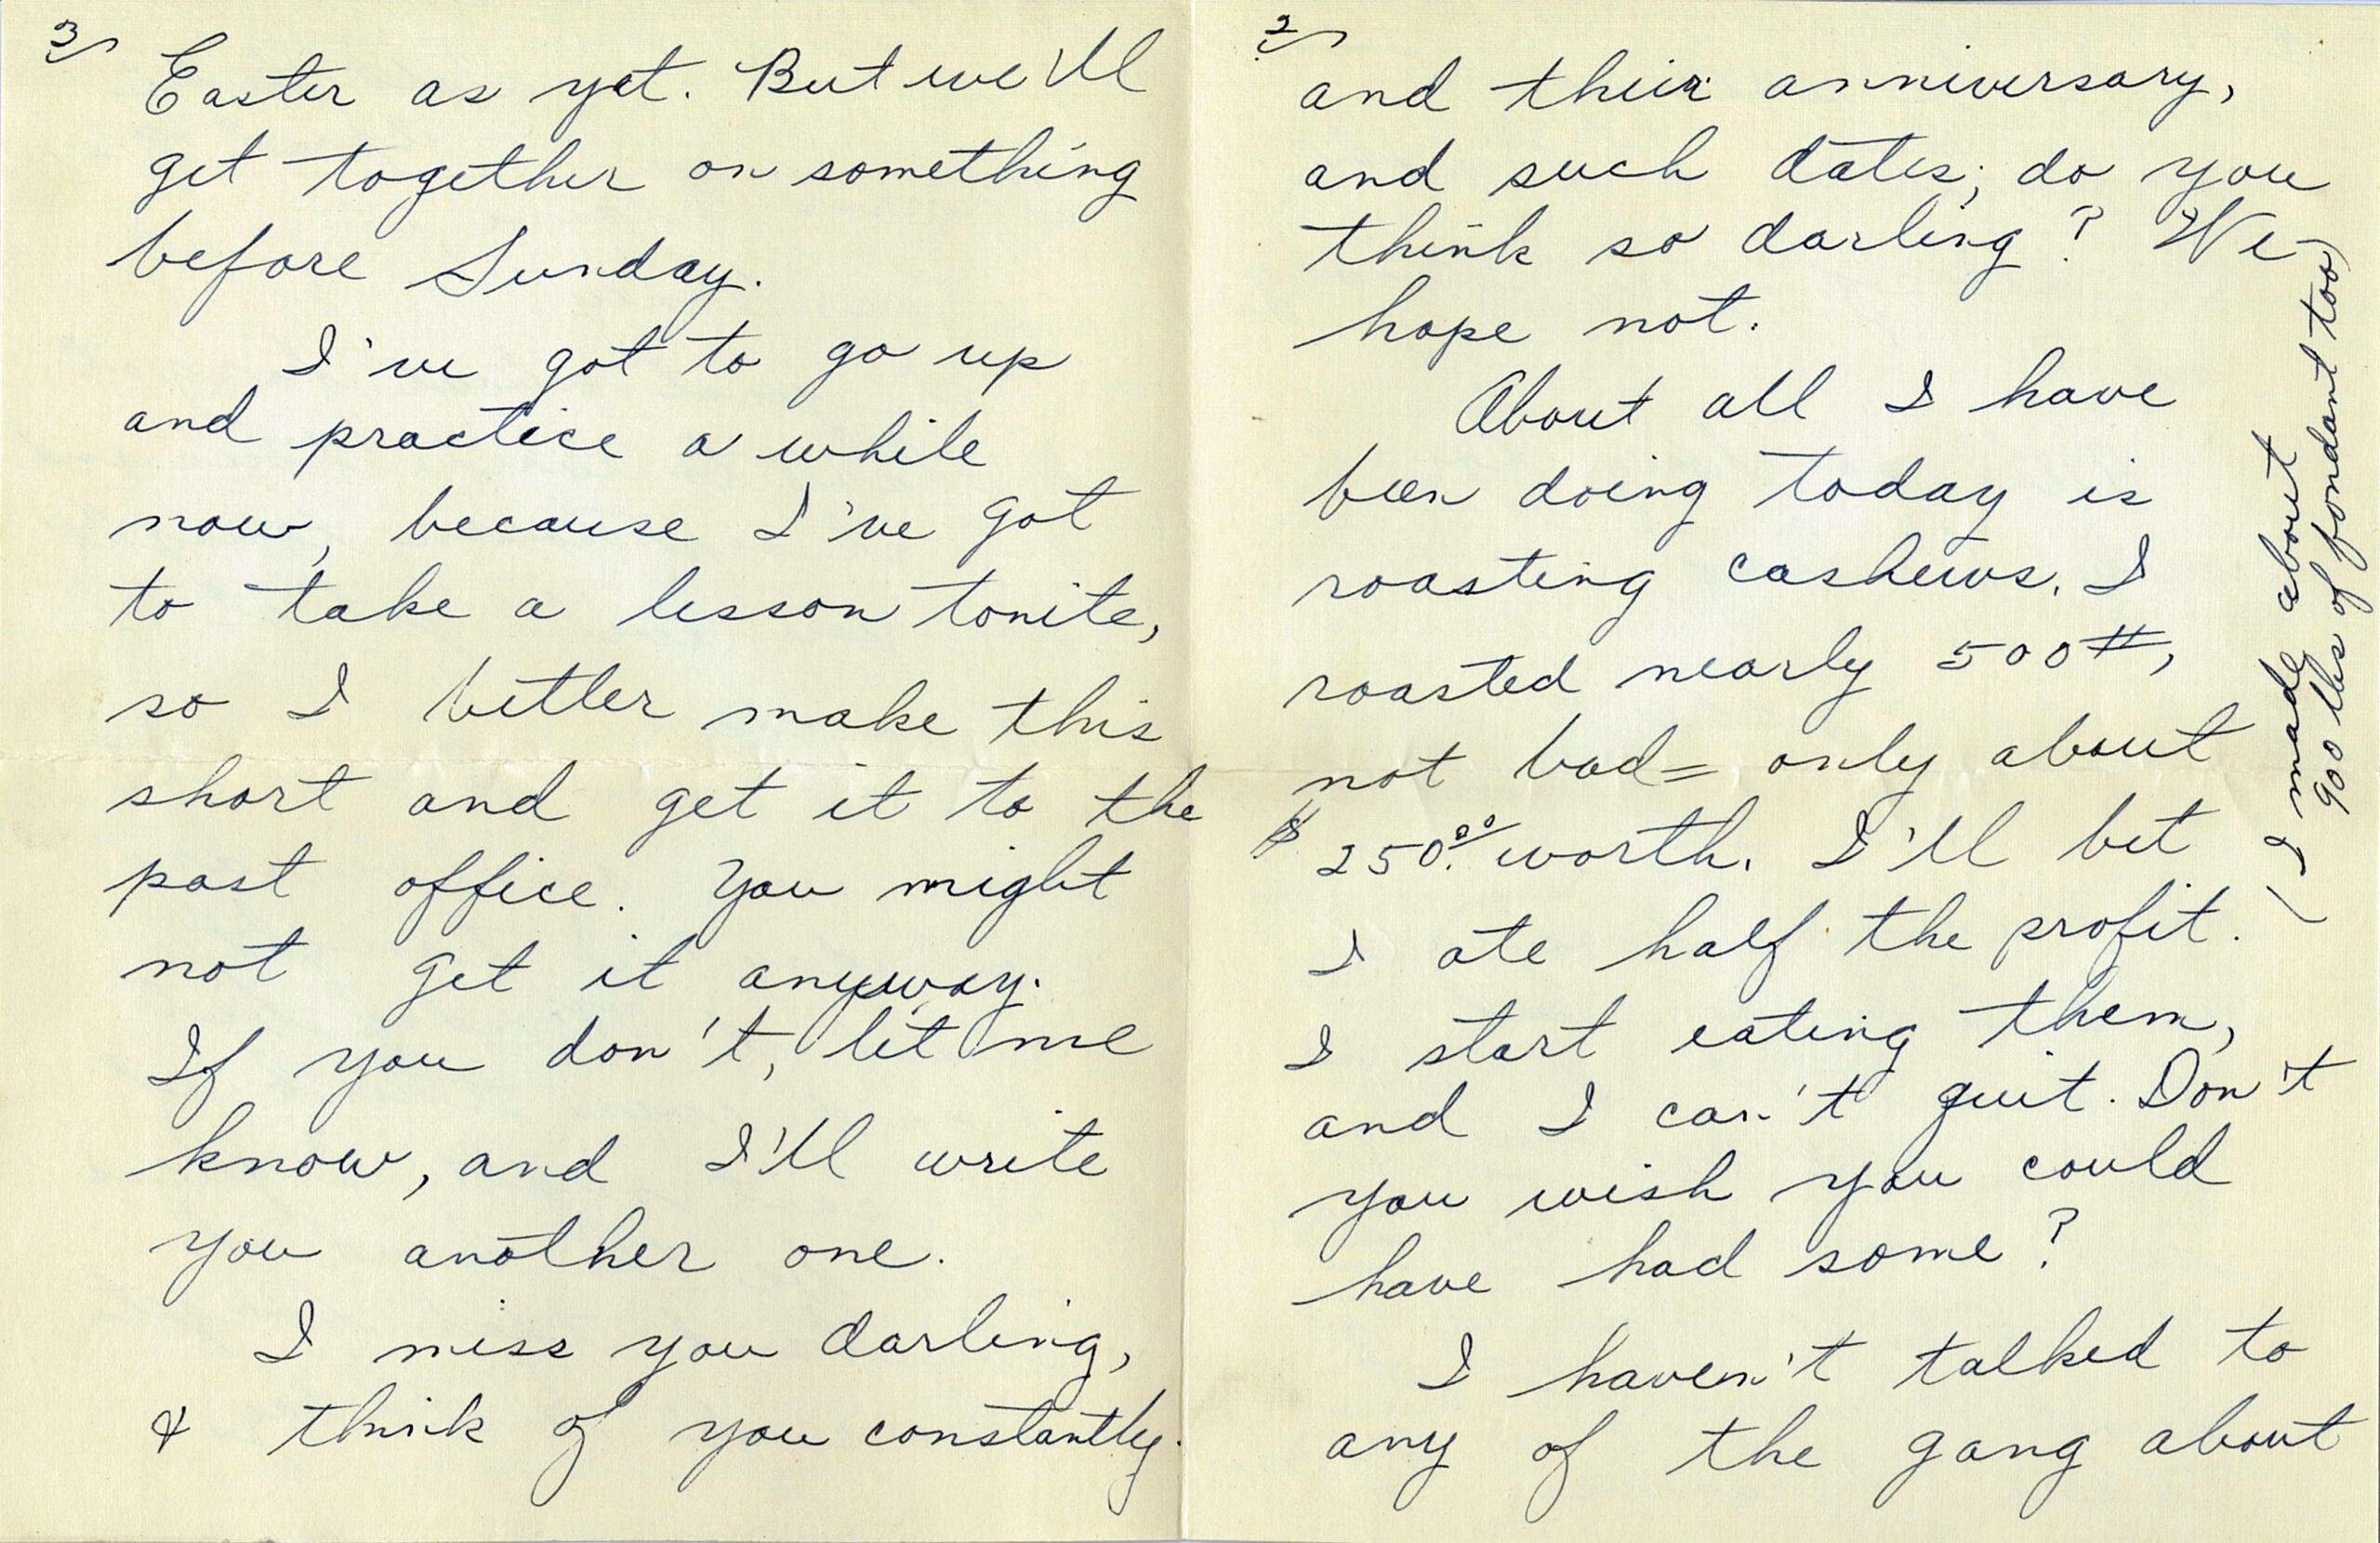 2
and their anniversary,
and such dates; do you
think so darling? We
hope not.
About all I have
been doing today is
roasting cashews. I
roasted nearly 500#,
not bad = only about
$250.00 worth. I'll bet
I ate half the profit.
I start eating them,
and I can't quit. Don't
you wish you could
have had some?
I haven't talked to
any of the gang about
(I made about
900 lbs of fondant too)
3
Easter as yet. But we'll
get together on something
before Sunday.
I've got to go up
and practice a while
now, because I've got
to take a lesson tonite,
so I better make this
short and get it to the
post office. You might
not get it anyway.
If you don't, let me
know, and I'll write
you another one.
I miss you darling,
& think of you constantly.